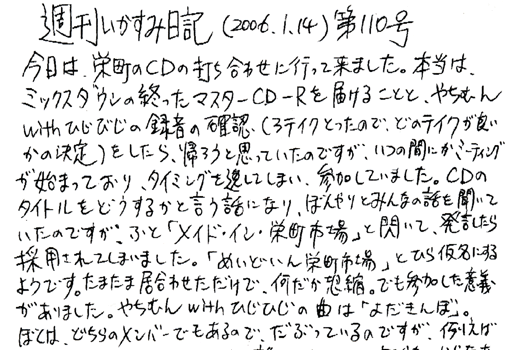 週刊いかすみ日記(2006.1.14)第110号
今日は、栄町のCDの打ち合わせに行って来ました。本当は、
ミックスダウンの終ったマスターCD-Rを届けることと、やちむん
withひじひじの録音の確認、(3テイクとったので、どのテイクが良い
かの決定)をしたら、帰ろうと思っていたのですが、いつの間にかミーティング
が始まっており、タイミングを逸してしまい、参加していました。CDの
タイトルをどうするかと言う話になり、ぼんやりとみんなの話を聞いて
いたのですが、ふと「メイド・イン・栄町市場」と閃いて、発言したら
採用されてしまいました。「めいどいん栄町市場」とひら仮名にする
ようです。たまたま居合わせただけで、何だか恐縮。でも参加した意義
がありました。やちむんwithひじひじの曲は「よだきんぼ」。
ぼくは、どちらのメンバーでもあるので、だぶっているのですが、例えば